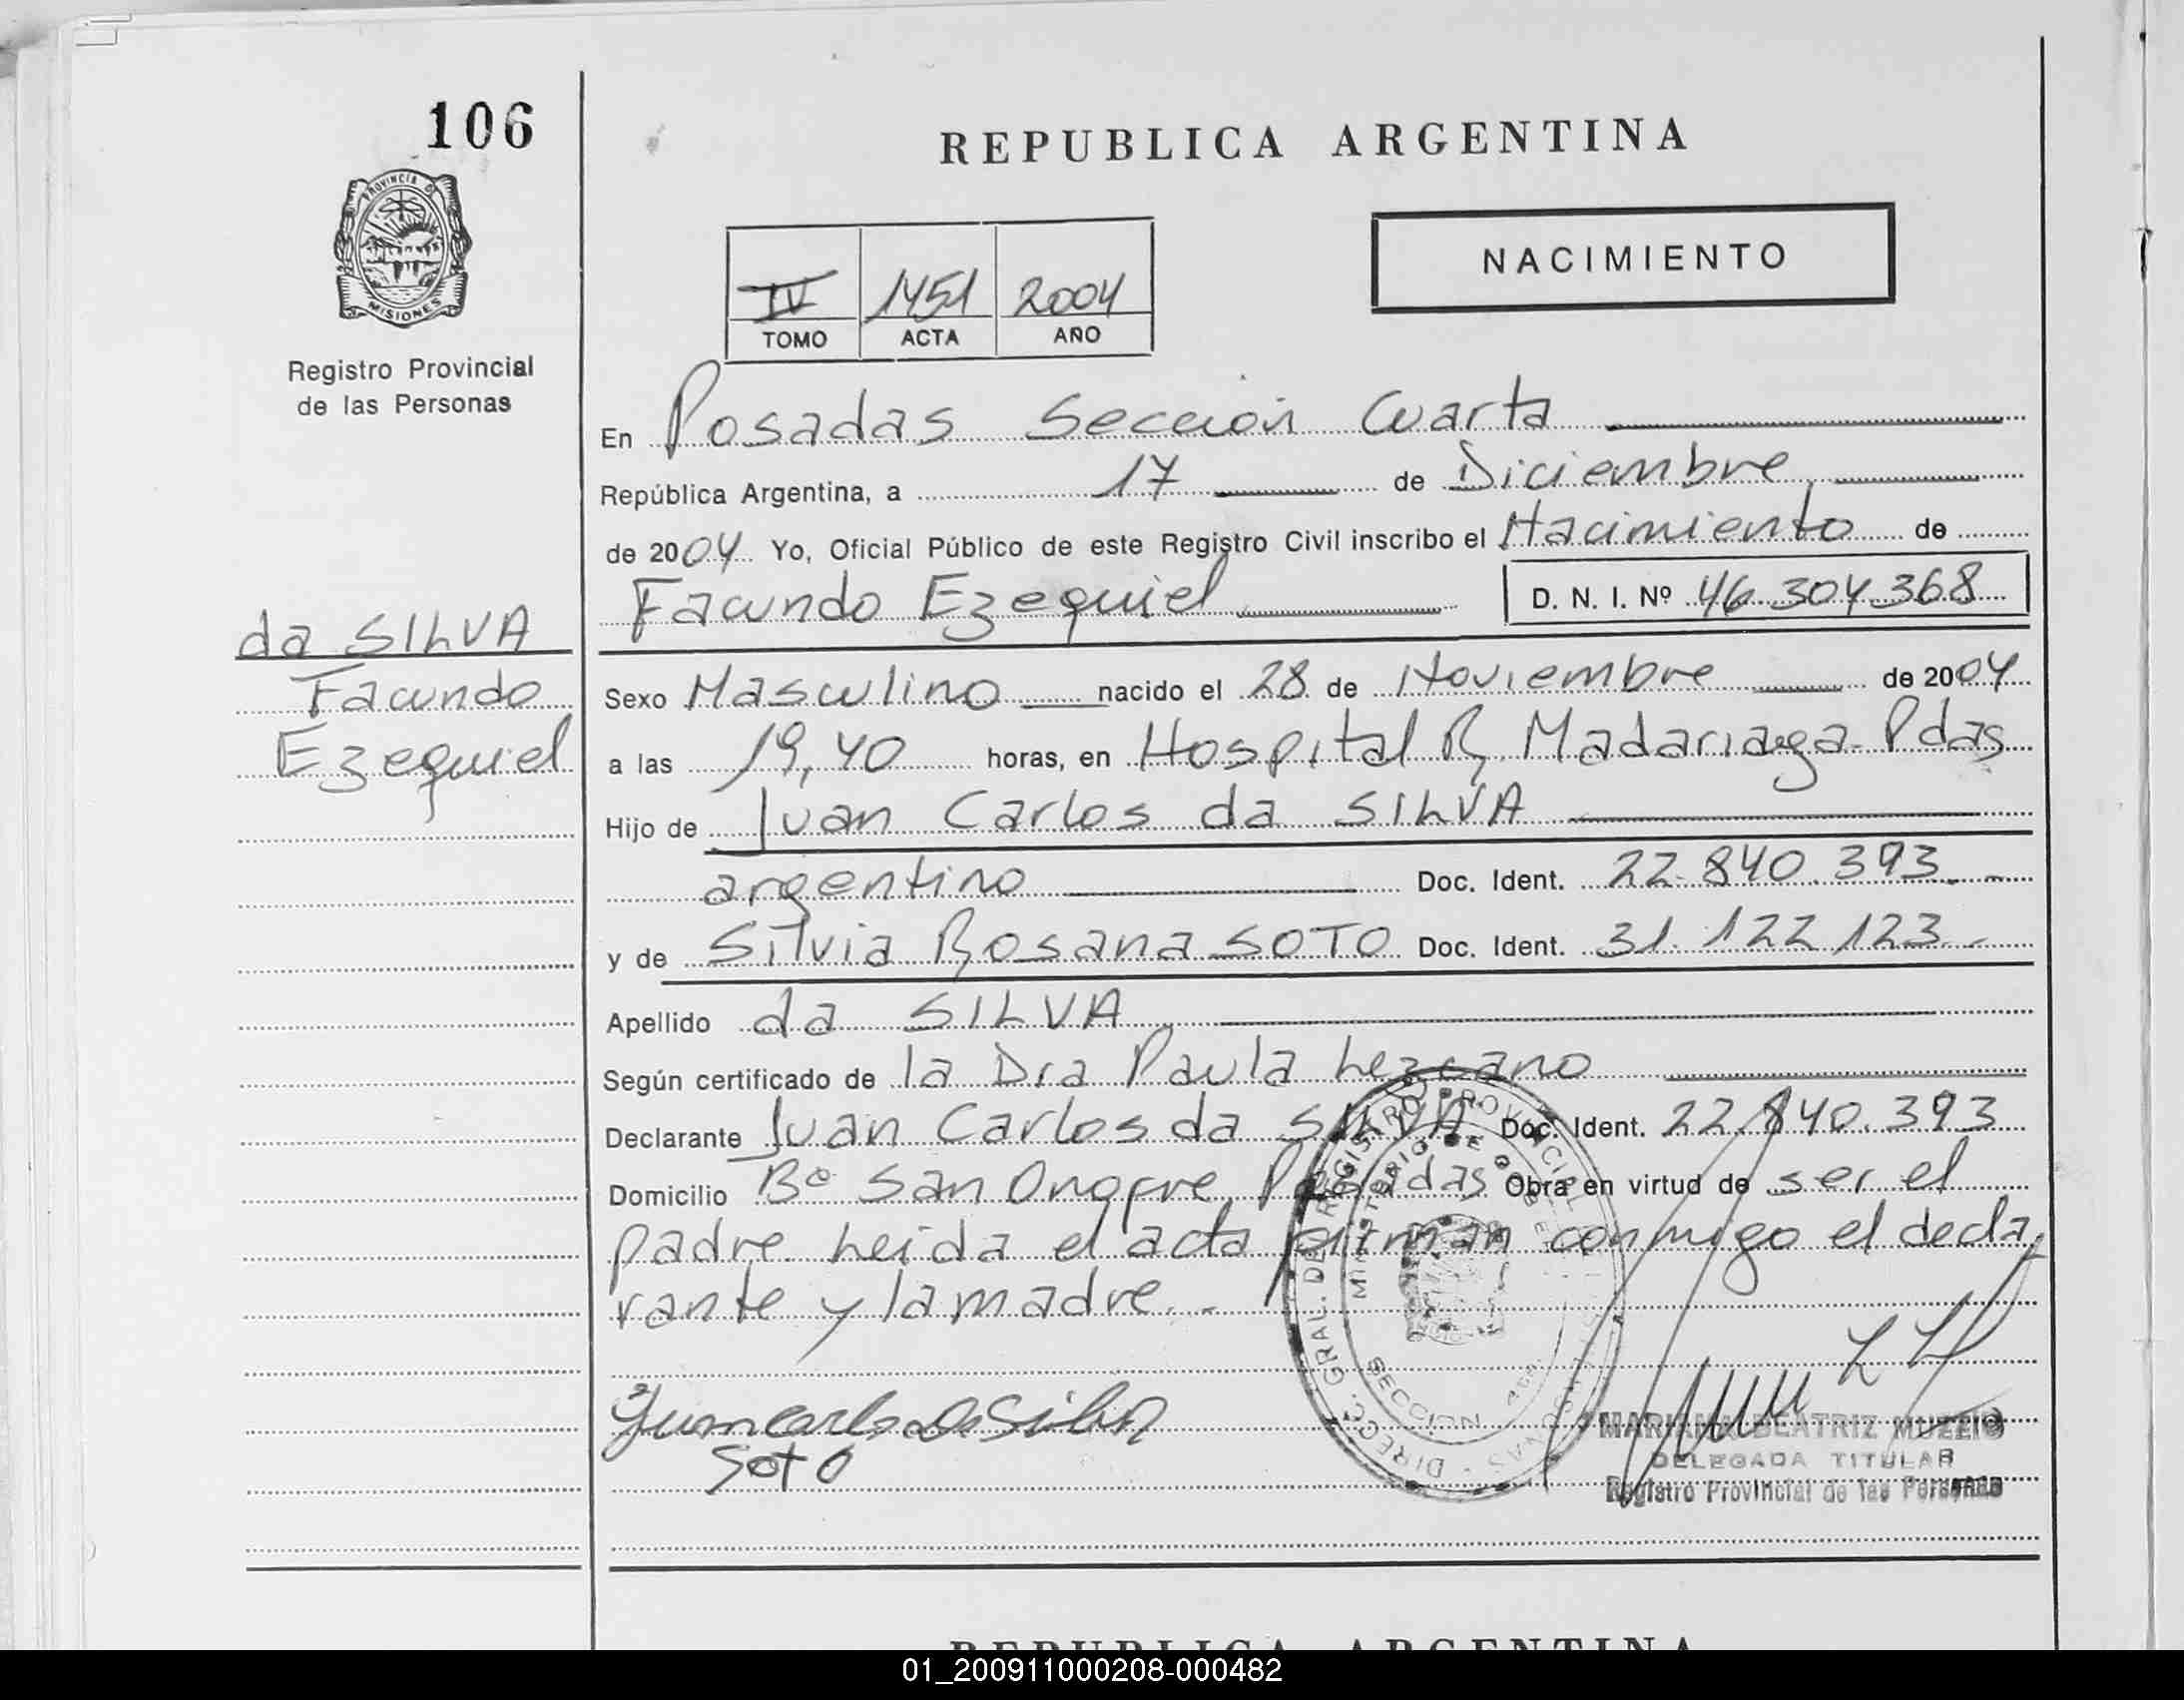 106
REPUBLICA ARGENTINA
PROVINCIA D
MISIONES
Registro Provincial
de las Personas
NACIMIENTO
IV 1451 2004
TOMO ACTA AÑO
En Posadas Sección Cuarta
República Argentina, a 17 de Diciembre
de 2004 Yo, Oficial Público de este Registro Civil inscribo el Nacimiento de
Facundo Ezequiel D. N. I. Nº 46.304.368
da SILVA
Facundo
Ezequiel
Sexo Masculino nacido el 28 de Noviembre de 2004
a las 19,40 horas, en Hospital R. Madariaga Pdas
Hijo de Juan Carlos da SILVA
argentino Doc. Ident. 22.840.393.-
y de Silvia Rosana SOTO Doc. Ident. 31.122.123.-
Apellido da SILVA
Según certificado de la Dra Paula Lezcano
Declarante Juan Carlos da SILVA Doc. Ident. 22.840.393
Domicilio Bº San Onofre, Posadas Obra en virtud de ser el
padre Leida el acta firman conmigo el decla
rante y la madre.-
Juan Carlos Da Silva
Soto
MARIANA BEATRIZ MUZZIO
DELEGADA TITULAR
Registro Provincial de las Personas
REPUBLICA ARGENTINA
01_200911000208-000482